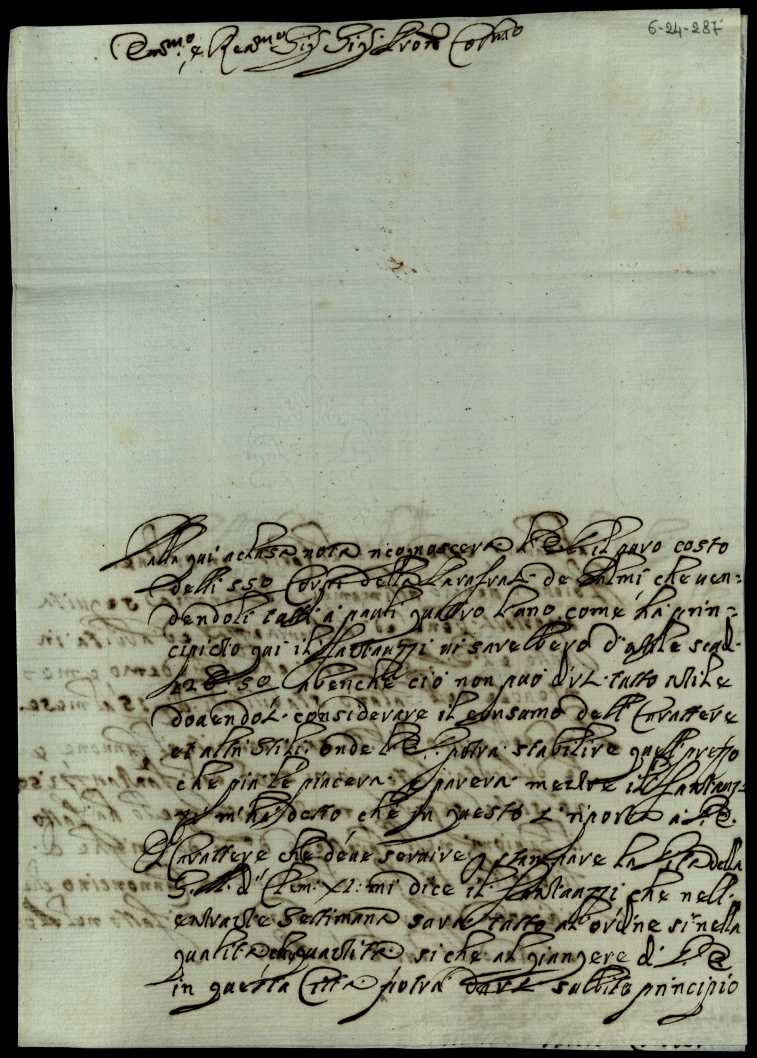 6-24-287
Em.mo e Rev.mo Sig.r Sig.r Pron Col.mo
Dalla qui aclusa nota ricognoscerà l'E. il puro costo
delli 550 Corpi della de Salmi che ven=
dendoli tutti a pauli quattro l'uno come ha prin=
cipicto qui il Fantauzzi vi sarebbero d'utile scud.
128 50 abenche ciò non può tutto utile
dovendosi considerare il consumo dell Carattere
et altri Stili onde l'E. potrà stabilire quel prezzo
che più le piacerà e parerà mentre il Fantauz=
zi m'ha detto che in questo si riporta a V.E.
Il Carattere che deve servire p stampare la Vita della
S. M. d Clem: XI: mi dice il Fantauzzi che nell'
entrante Settimana sarà tutto al ordine si nella
qualità che quantità si che al giongere di V.E.
in questa Città potrà dare subbito principio